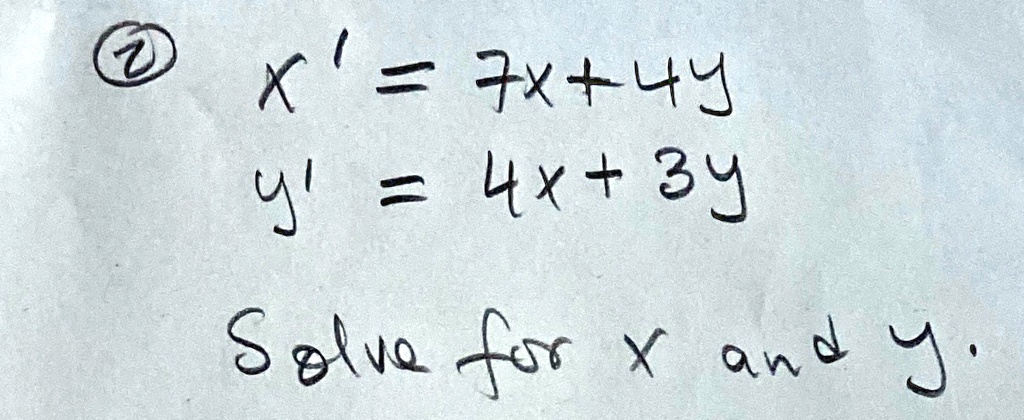 ② x' = 7x+4y
y' = 4x+3y
Solve for x and y.